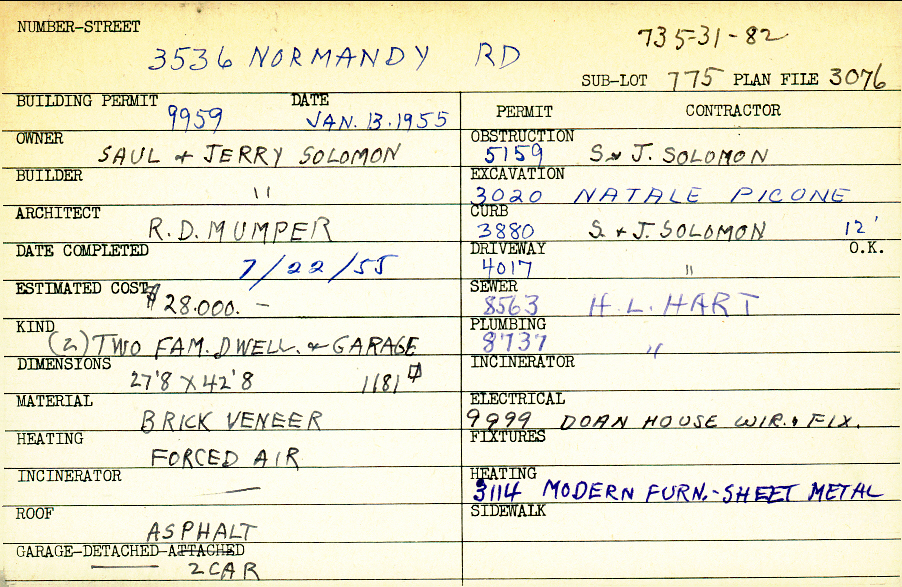 NUMBER-STREET
3536 NORMANDY RD
735-31-82
SUB-LOT 775 PLAN FILE 3076
BUILDING PERMIT DATE
9959 JAN. 13. 1955
OWNER
SAUL & JERRY SOLOMON
BUILDER
"
ARCHITECT
R. D. MUMPER
DATE COMPLETED
7/22/55
ESTIMATED COST
$28.000. —
KIND
(2) TWO FAM. DWELL. & GARAGE
DIMENSIONS
27'8 X 42'8 1181
MATERIAL
BRICK VENEER
HEATING
FORCED AIR
INCINERATOR
—
ROOF
ASPHALT
GARAGE-DETACHED-ATTACHED
2 CAR
PERMIT CONTRACTOR
OBSTRUCTION
5159 S & J. SOLOMON
EXCAVATION
3020 NATALE PICONE
CURB
3880 S. & J. SOLOMON 12'
DRIVEWAY O.K.
4017 "
SEWER
8563 H. L. HART
PLUMBING
8737 "
INCINERATOR
ELECTRICAL
9999 DOAN HOUSE WIR. & FIX.
FIXTURES
HEATING
3114 MODERN FURN.-SHEET METAL
SIDEWALK